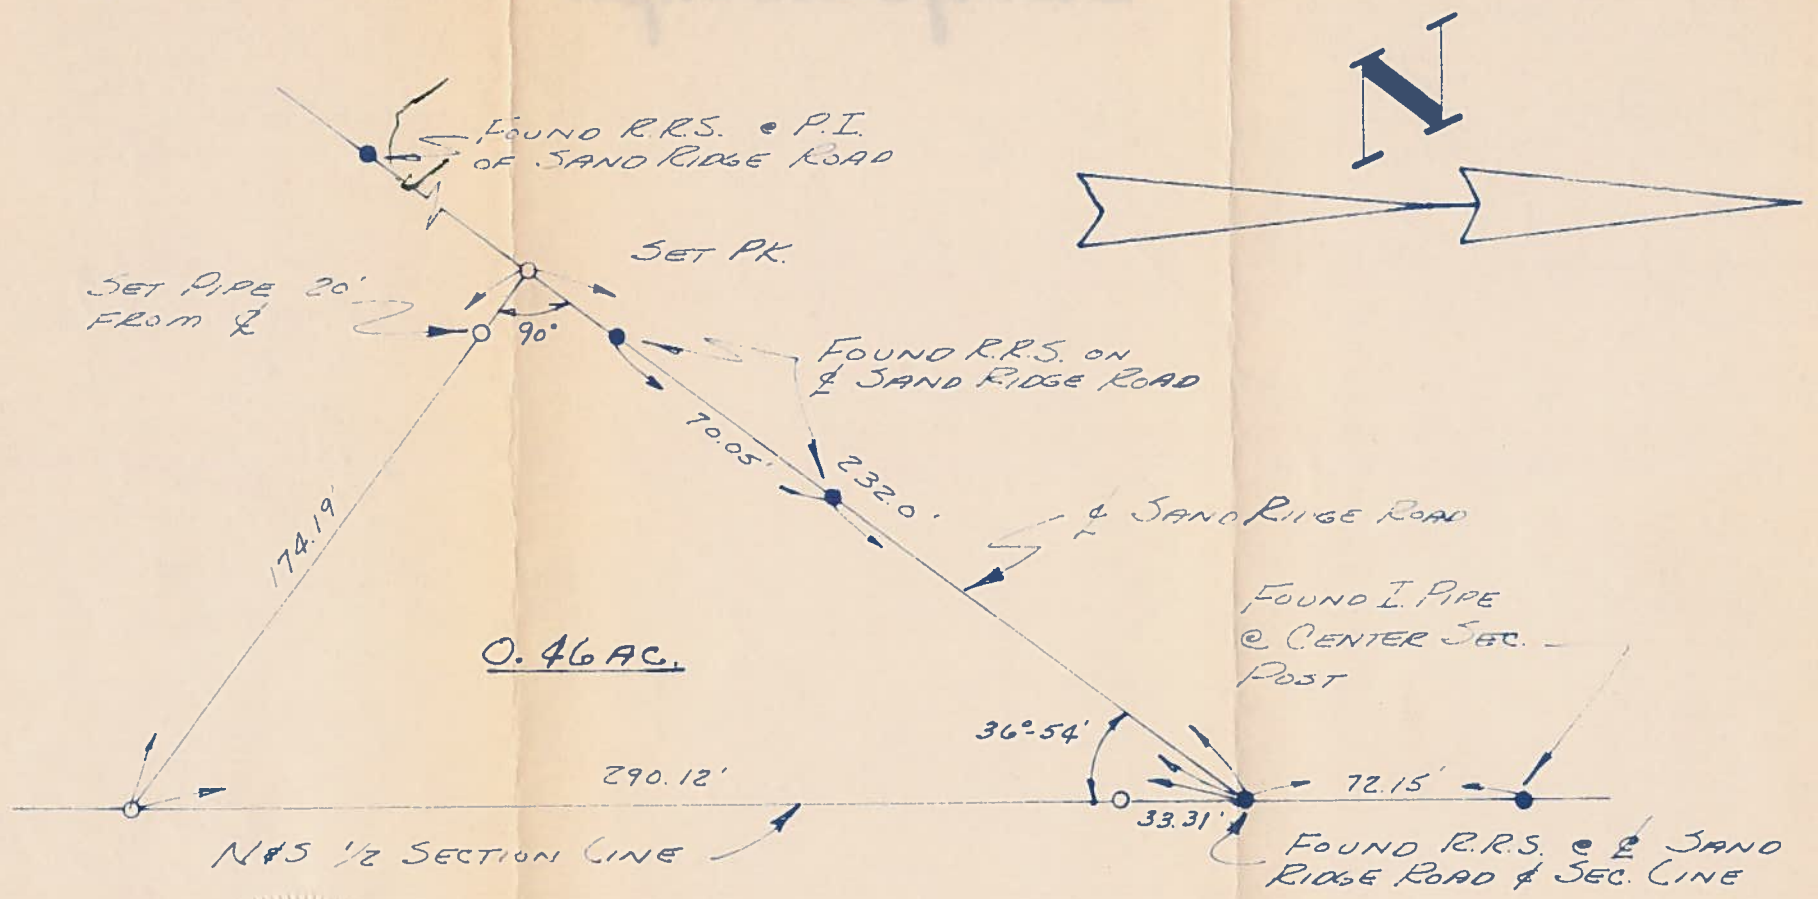 N
FOUND R.R.S. @ P.I.
OF SAND RIDGE ROAD
SET PK.
SET PIPE 20'
FROM ℄
90°
FOUND R.R.S. ON
℄ SAND RIDGE ROAD
70.05'
232.0'
174.19'
℄ SAND RIDGE ROAD
FOUND I. PIPE
@ CENTER SEC.
POST
0.46 AC.
36°-54'
290.12'
72.15'
33.31'
N&S 1/2 SECTION LINE
FOUND R.R.S. @ ℄ SAND
RIDGE ROAD & SEC. LINE